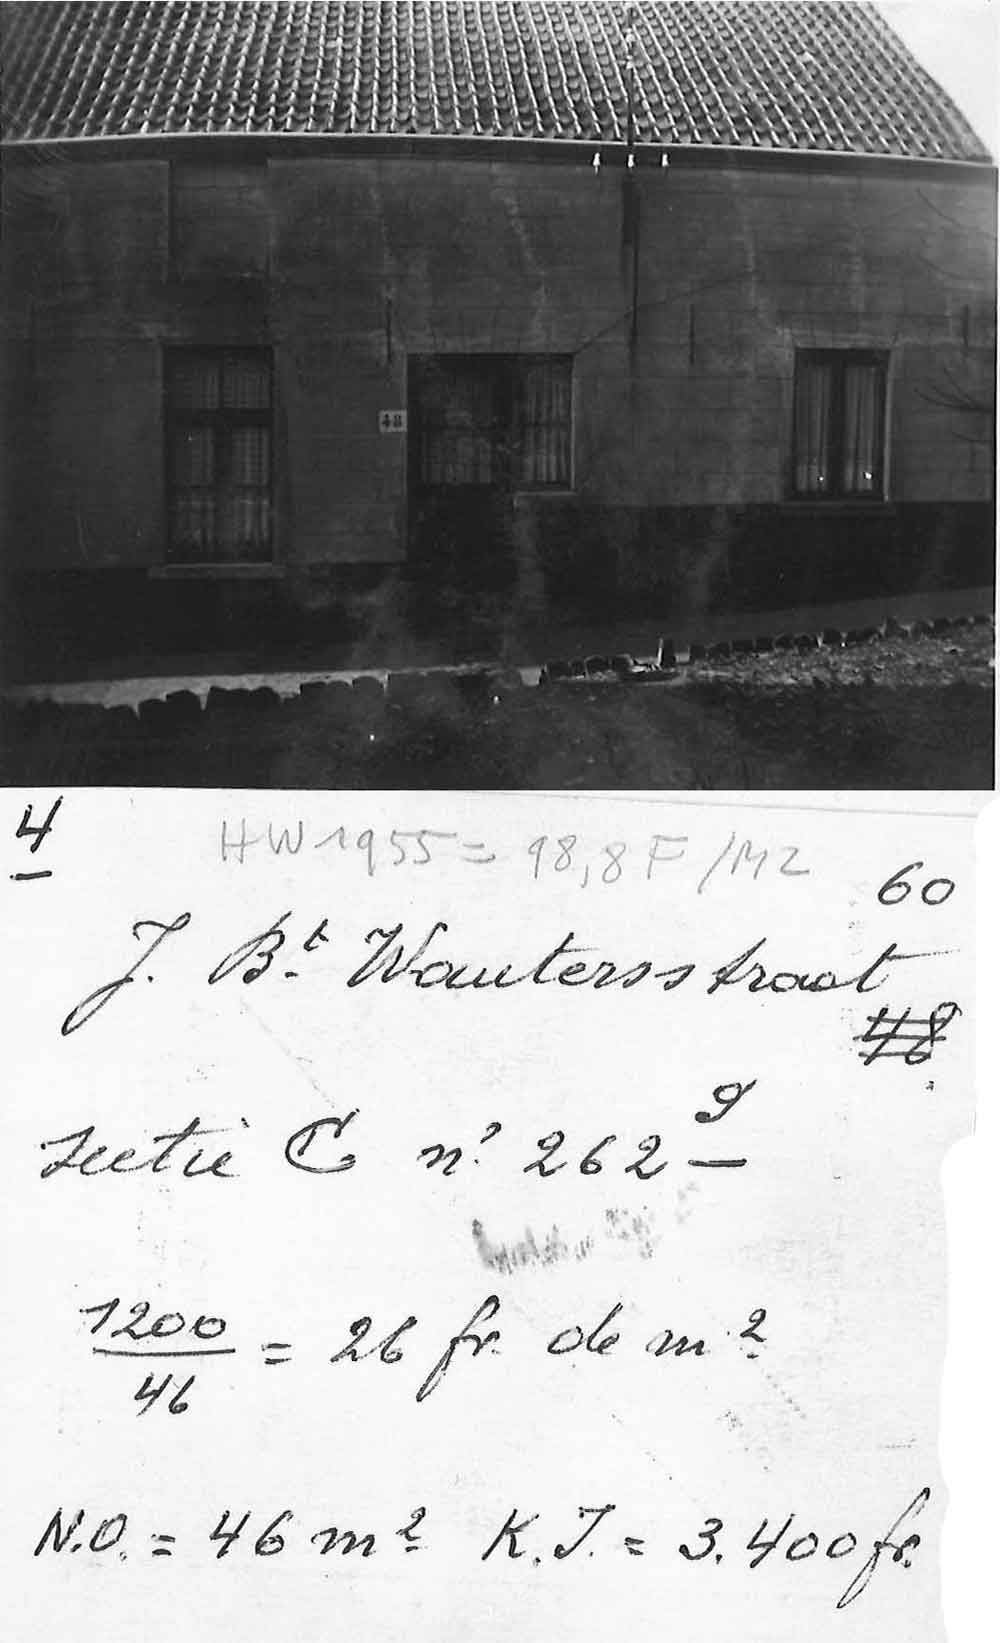 48
4
HW 1955 = 98,8 F/M2
60
J. Bt. Wautersstraat
48
sectie C nr 262 g
1200
46
= 26 fr. de m2
N.O. = 46 m2 K.I. = 3.400 fr.